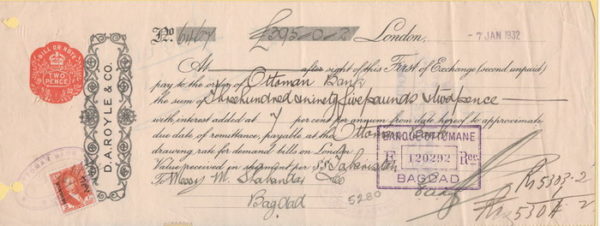 No 6467 £395-0-2 London, - 7 JAN 1932
BILL OR NOTE
TWO PENCE
D. A. ROYLE & CO.
At after sight of this First of Exchange (second unpaid)
pay to the order of Ottoman Bank
the sum of Three hundred ninety five pounds & two pence
with interest added at 7 per cent per annum from date hereof to approximate
due date of remittance, payable at the Ottoman Bank
drawing rate for demand bills on London.
Value received in shipment per S.S.
To Messrs M. & Co
Bagdad
BANQUE OTTOMANE
E 120292 Rec.
BAGDAD
5280
Rs 5303-2
Rs 5304-2